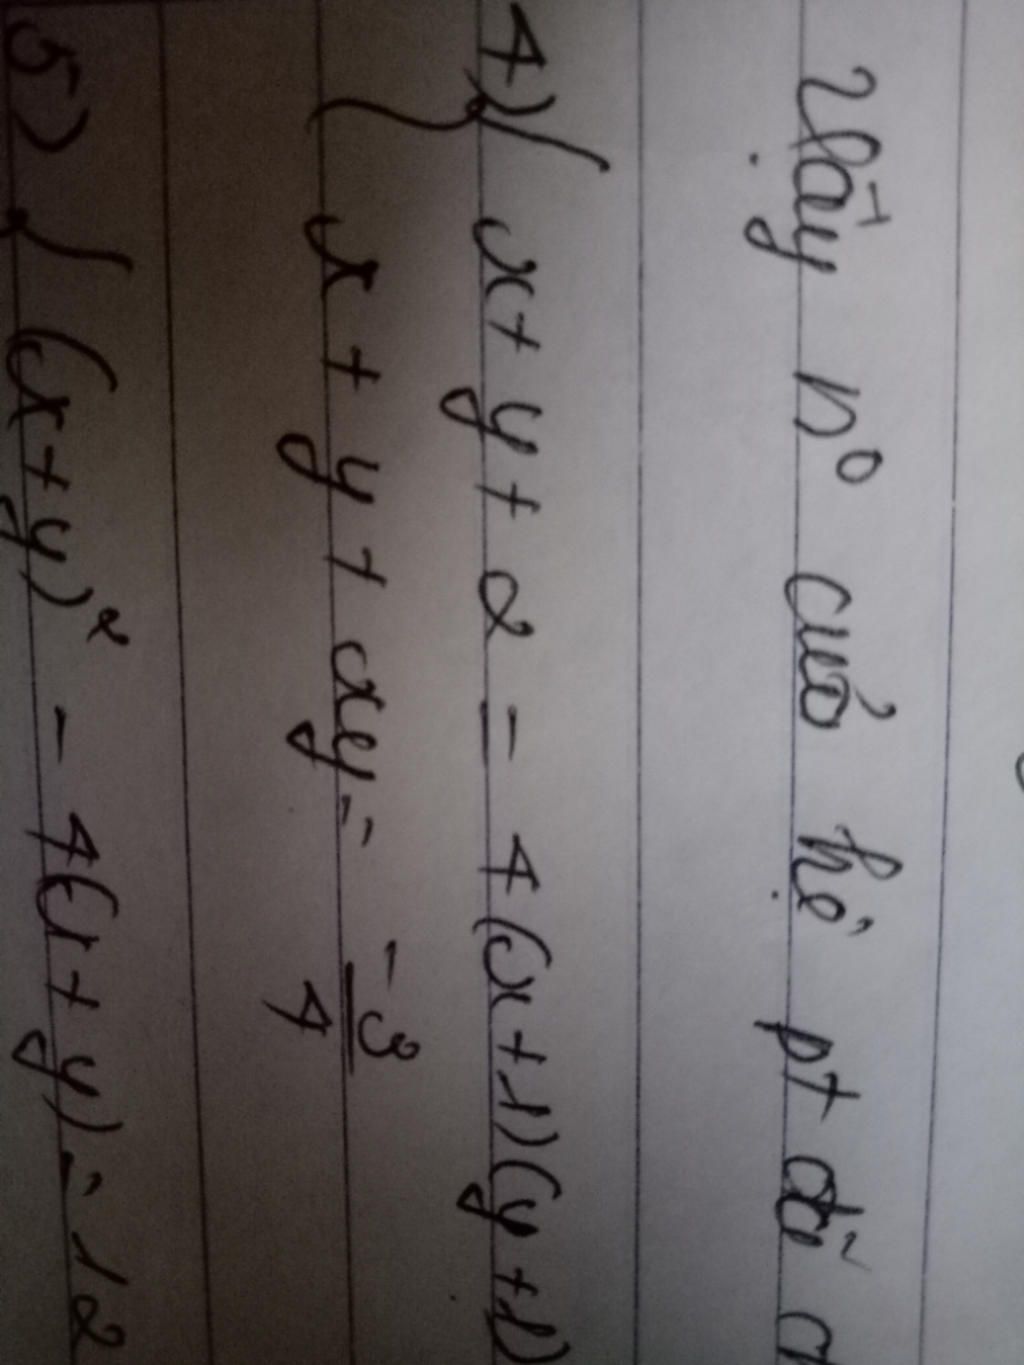 Vậy n° của hệ pt đã
4) { x + y + 2 = 4(x+1)(y+1)
x + y + xy = -3/4
5) { (x+y)² - 4(x+y) = 12